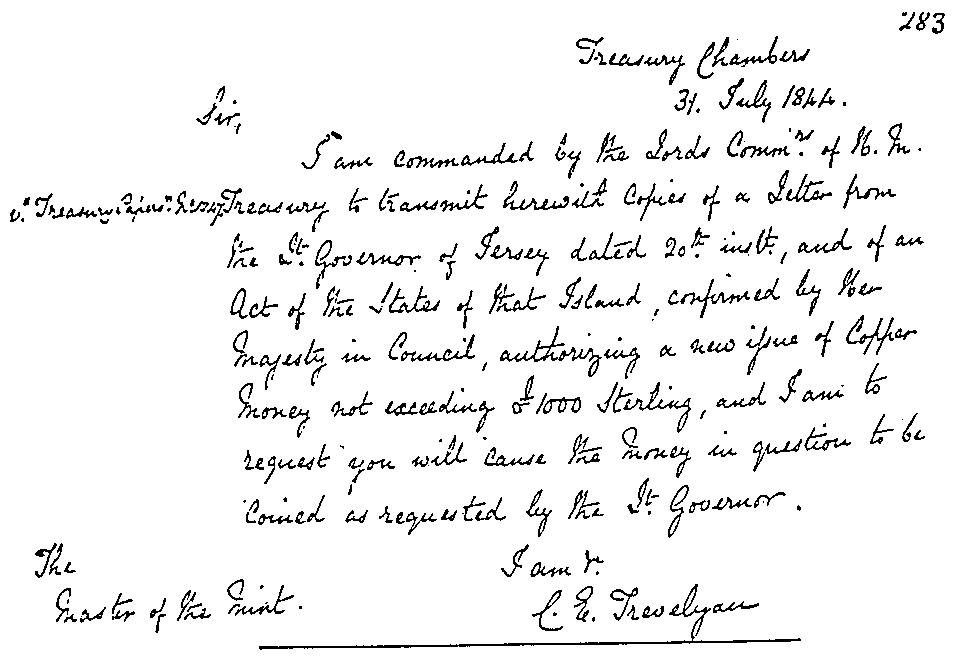 283
Treasury Chambers
31. July 1844.
Sir,
I am commanded by the Lords Comm.rs of H. M.
Treasury to transmit herewith Copies of a Letter from
the Lt. Governor of Jersey dated 20th inst., and of an
Act of the States of that Island, confirmed by Her
Majesty in Council, authorizing a new issue of Copper
Money not exceeding £1000 Sterling, and I am to
request you will cause the Money in question to be
coined as requested by the Lt. Governor.
I am &c.
C. E. Trevelyan
The
Master of the Mint.
v. Treasury Papers